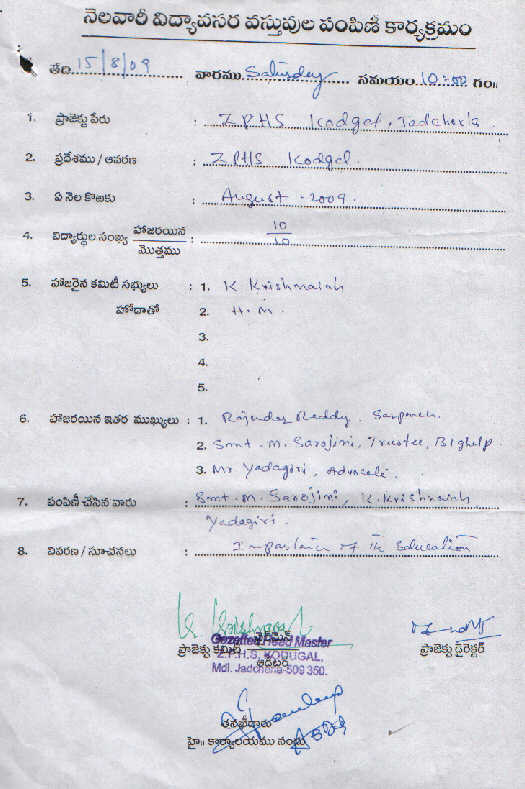 నెలవారీ విద్యావసర వస్తువుల పంపిణీ కార్యక్రమం
తేది. 15/8/09 వారము. Saturday సమయం. 10=00 గం॥
1. ప్రాజెక్టు పేరు : ZPHS Kodgal, Jadcherla.
2. ప్రదేశము / ఆవరణ : ZPHS Kodgal.
3. ఏ నెల కొఱకు : August - 2009.
4. విద్యార్థుల సంఖ్య హాజరయిన / మొత్తము : 10 / 10
5. హాజరైన కమిటీ సభ్యులు : 1. K Krishnaiah
హోదాతో 2. H.M.
3.
4.
5.
6. హాజరయిన ఇతర ముఖ్యులు : 1. Rajender Reddy. Sarpanch.
2. Smt. M. Sarojini, Trustee, BIGhelp.
3. Mr Yadagiri, Advocate.
7. పంపిణీ చేసిన వారు : Smt. M. Sarojini, K. Krishnaiah
Yadagiri.
8. వివరణ / సూచనలు : Importance of the Education
ప్రాజెక్టు కమిటీ ఛైర్మెన్ ప్రాజెక్టు డైరెక్టర్
Gazetted Head Master
Z.P.H.S. KODUGAL,
ఆడిటర్
Mdl. Jadcherla-509 350.
తనిఖీదారు
హై॥ కార్యాలయము సంఖ్య A509